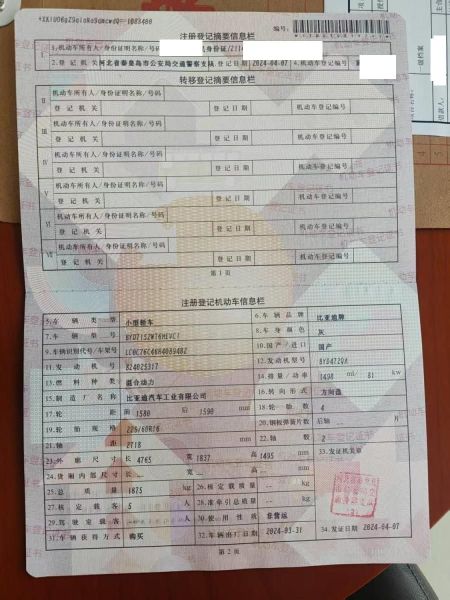 注册登记摘要信息栏
编号:
1.机动车所有人/身份证明名称/号码 居民身份证/211
2.登记机关 河北省秦皇岛市公安局交通警察支队 3.登记日期 2024-04-07 4.机动车登记编号
转移登记摘要信息栏
II 机动车所有人/身份证明名称/号码
登记机关 登记日期 机动车登记编号
III 机动车所有人/身份证明名称/号码
登记机关 登记日期 机动车登记编号
IV 机动车所有人/身份证明名称/号码
登记机关 登记日期 机动车登记编号
V 机动车所有人/身份证明名称/号码
登记机关 登记日期 机动车登记编号
VI 机动车所有人/身份证明名称/号码
登记机关 登记日期 机动车登记编号
VII 机动车所有人/身份证明名称/号码
登记机关 登记日期 机动车登记编号
第1页
注册登记机动车信息栏
5.车辆类型 小型轿车 6.车辆品牌 比亚迪牌
7.车辆型号 BYD7152WT6HEVC1 8.车身颜色 灰
9.车辆识别代号/车架号 10.国产/进口 国产
11.发动机号 12.发动机型号 BYD472QA
13.燃料种类 混合动力 14.排量/功率 1498 ml/ 81 kw
15.制造厂名称 比亚迪汽车工业有限公司 16.转向形式 方向盘
17.轮距 前 1580 后 1590 mm 18.轮胎数 4
19.轮胎规格 225/60R16 20.钢板弹簧片数 后轴 -- 片
21.轴距 2718 mm 22.轴数 2
23.外廓尺寸 长 4765 宽 1837 高 1495 mm 33.发证机关章
24.货厢内部尺寸 长 -- 宽 -- 高 -- mm
25.总质量 1875 kg 26.核定载质量 -- kg
27.核定载客 5 人 28.准牵引总质量 -- kg
29.驾驶室载客 -- 人 30.使用性质 非营运
31.车辆获得方式 购买 32.车辆出厂日期 2024-03-31 34.发证日期 2024-04-07
第2页